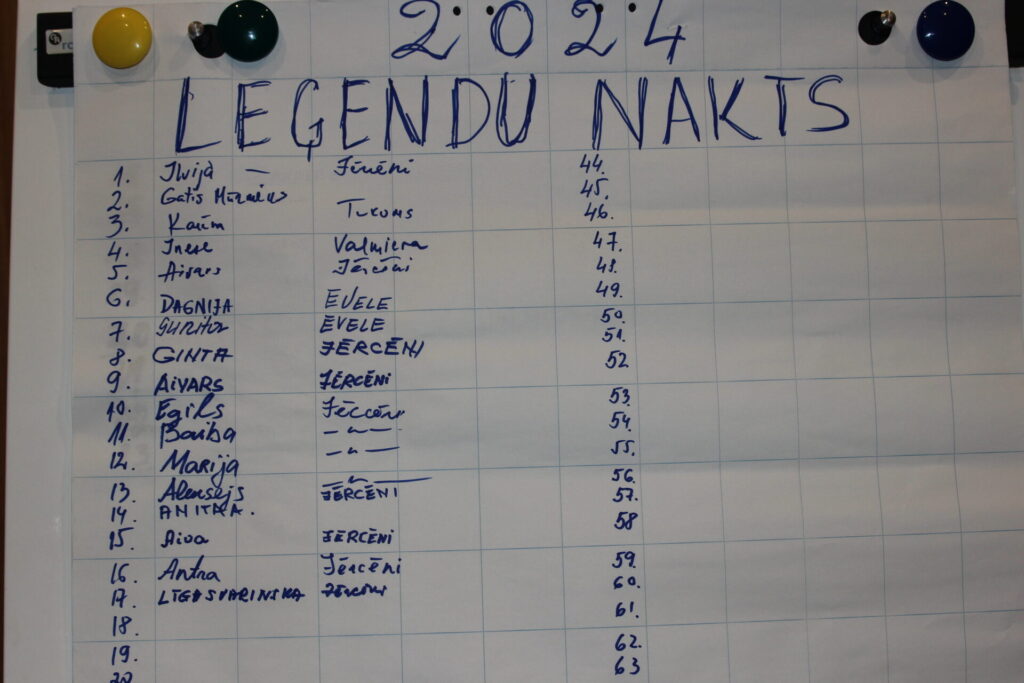 2024
LEĢENDU NAKTS
1. Ilvija — Jērcēni 44.
2. Gatis 45.
3. Tukums 46.
4. Inese Valmiera 47.
5. Aivars Jērcēni 48.
6. DAGNIJA ĒVELE 49.
7. ĒVELE 50.
8. GINTA JĒRCĒNI 51.
9. AIVARS JĒRCĒNI 52
10. Egils Jērcēni 53.
11. Baiba —"— 54.
12. Marija —"— 55.
13. Aleksejs —"— 56.
14. ANITRA. JĒRCĒNI 57.
15. Aiva JĒRCĒNI 58
16. Antra Jērcēni 59.
17. Jērcēni 60.
18. 61.
19. 62.
20 63